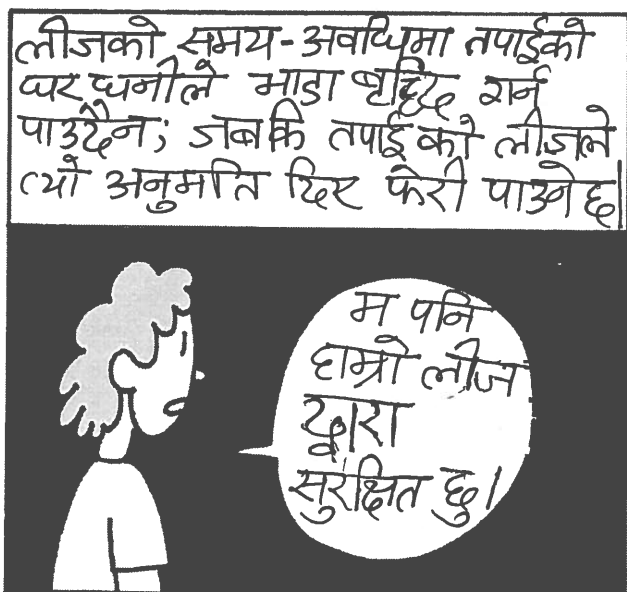 लीजको समय-अवधिमा तपाईको
घर धनीले भाडा बृद्धि गर्न
पाउदैन; जबकि तपाईको लीजले
त्यो अनुमति दिए फेरी पाउने छ।
म पनि
हाम्रो लीज
द्वारा
सुरक्षित छु।